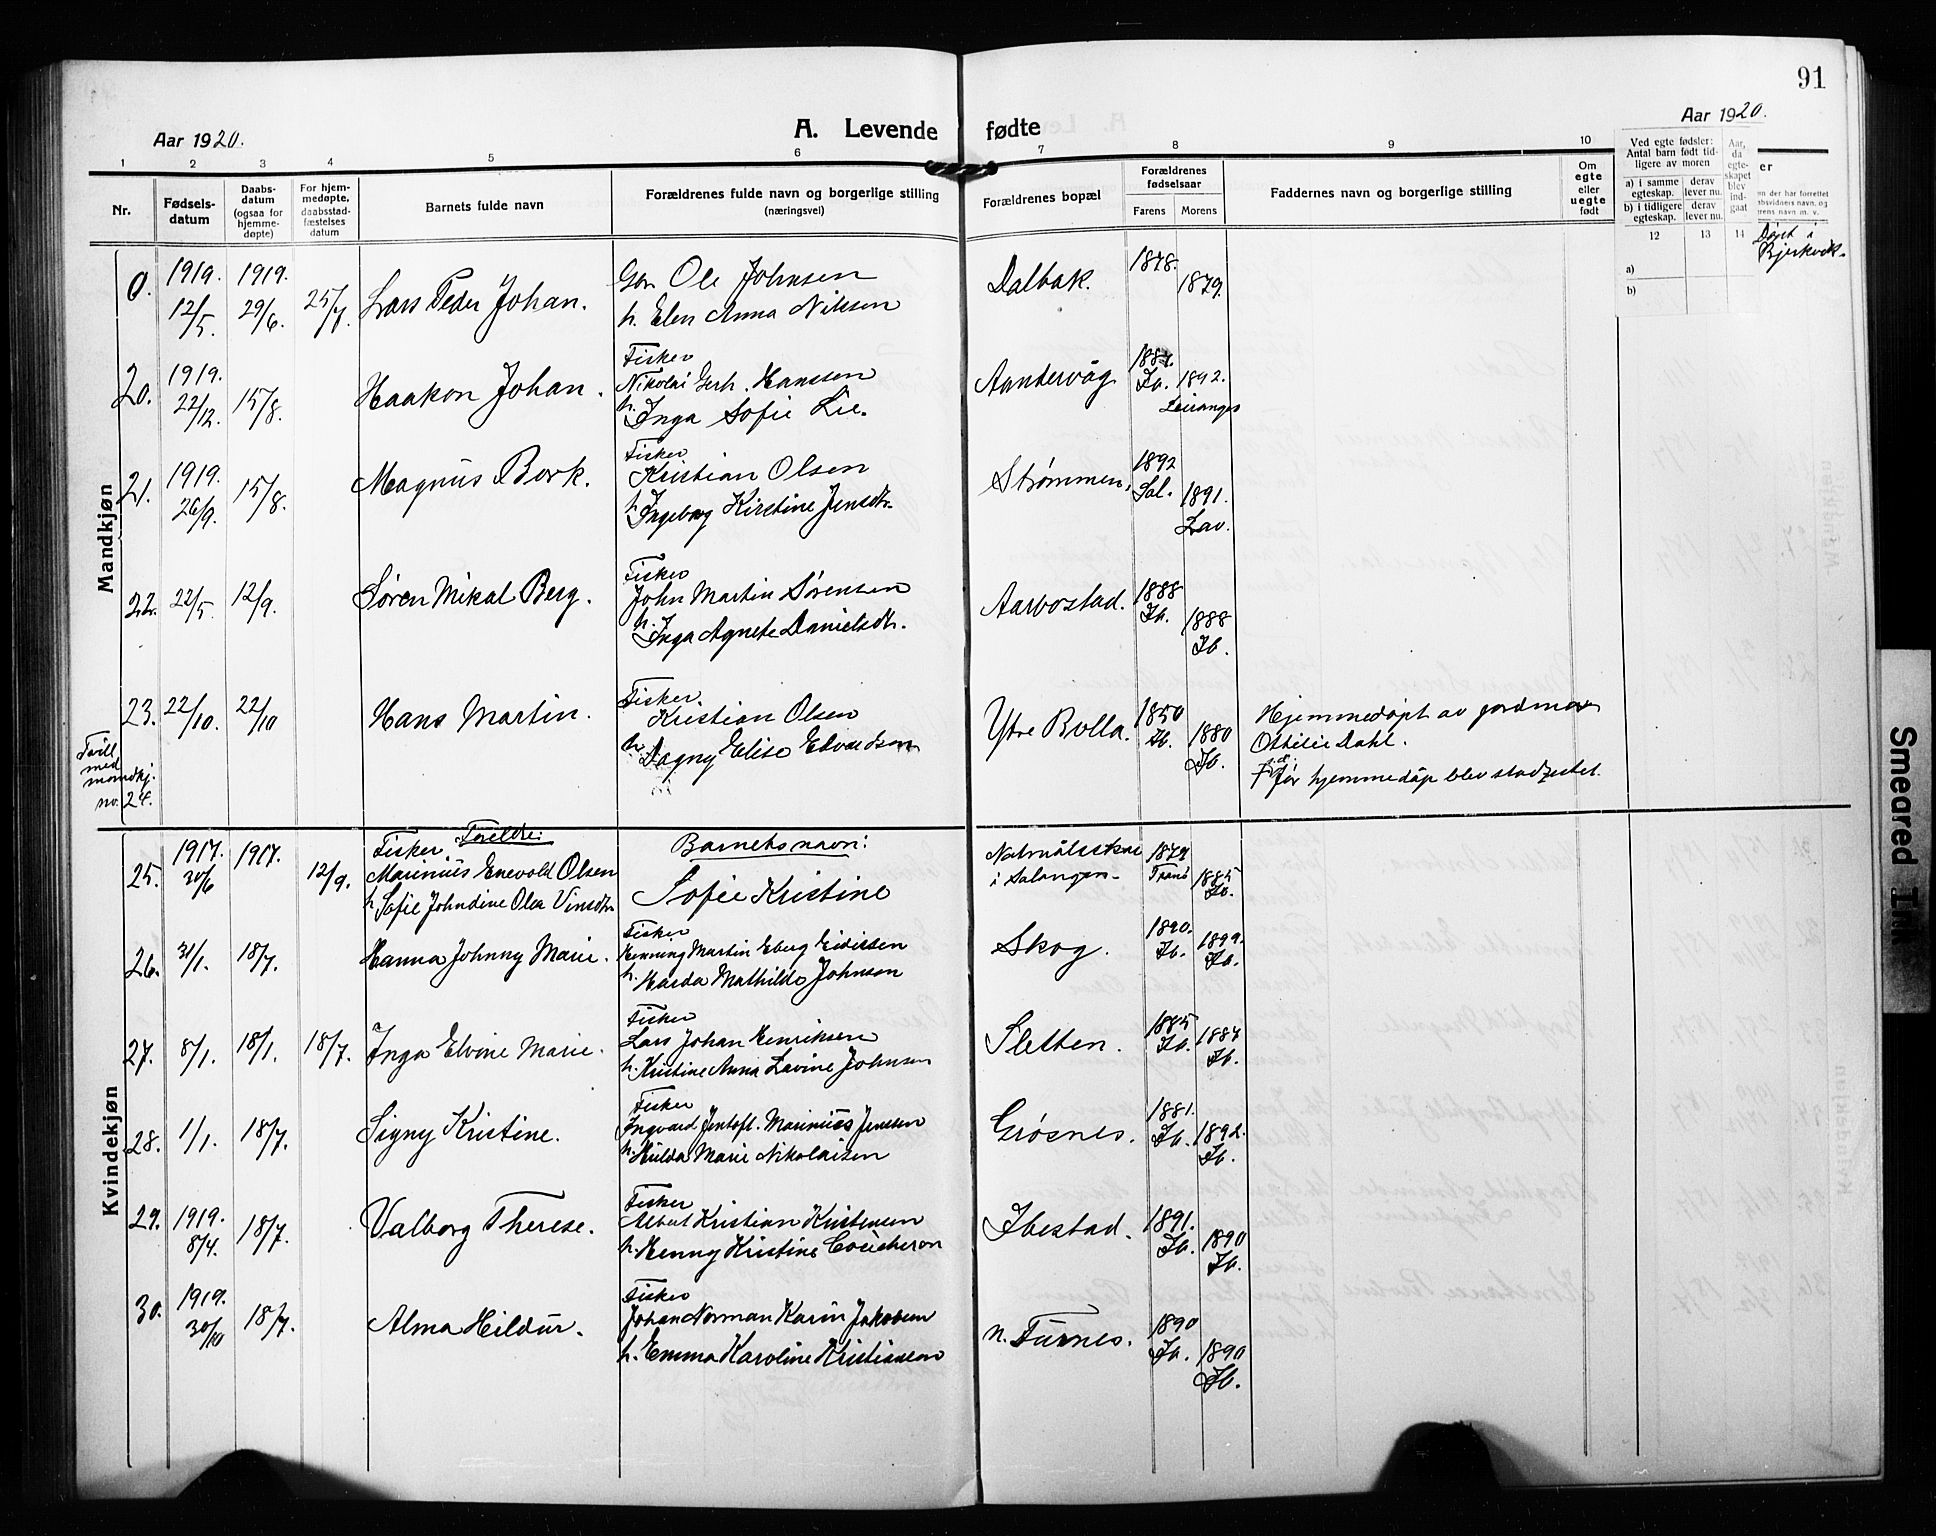 91
Aar 1920.
A. Levende fødte
Aar 1920.
1 2 3 4 5 6 7 8 9 10
Nr.
Fødsels-
datum
Daabs-
datum
(ogsaa for
hjemme-
døpte)
For hjem-
medøpte,
daabsstad-
fæstelses
datum
Barnets fulde navn
Forældrenes fulde navn og borgerlige stilling
(næringsvei)
Forældrenes bopæl
Forældrenes
fødselsaar
Farens Morens
Faddernes navn og borgerlige stilling
Om
egte
eller
uegte
født
Ved egte fødsler:
Antal barn født tid-
ligere av moren
a) i samme
egteskap.
derav
lever nu.
b) i tidligere
egteskap.
derav
lever nu.
Aar,
da
egte-
skapet
blev
ind-
gaat
12 13 14
a)
b)
Døpt i
Bjerkvik.
Mandkjøn
0. 1919. 12/5. 1919. 29/6. 25/7. Lars Peder Johan.
Gbr. Ole Johnsen
h. Elen Anna Nilsen
Dalbak. 1878. 1879.
20. 1919. 22/12. 15/8. Haakon Johan.
Fisker
Nikolai Gerh. Hanssen
h. Inga Sofie Lie.
Aandervåg Ib. 1892. Leiranger
21. 1919. 26/9. 15/8. Magnus Bork.
Fisker
Kristian Olsen
h. Ingeborg Kirstine Jensdtr.
Strømmen. 1892 Sal. 1891. Lav.
22. 22/5. 12/9. Søren Mikal Berg.
Fisker
John Martin Sørensen
h. Inga Agnete Danielsdtr.
Aarbostad. 1888 Ib. 1888 Ib.
23. 22/10. 22/10 Hans Martin.
Fisker
Kristian Olsen
h. Dagny Elise Edvardsen
Ytre Bolla. 1850 Ib. 1880 Ib.
Hjemmedøpt av jordmor
Othilie Dahl.
før hjemmedåp blev stadfestet.
Tvill.
med
mandkj.
no. 24.
Kvindekjøn
25. 1917. 30/6 1917. 12/9.
Foreldre:
Fisker
Marinius Enevold Olsen
h. Sofie Johndine Olea Vinsdtr.
Barnets navn:
Sofie Kristine
i Salangen. 1879 Tranö 1885 Ib.
26. 31/1. 18/7. Hanna Johnny Marie.
Fisker
Henning Martin Eberg Eidissen
h. Harda Mathilde Johnson
Skog. 1890. Ib. 1899. Ib.
27. 8/1. 18/1. 18/7. Inga Elvine Marie.
Fisker
Lars Johan Henriksen
h. Kristine Anna Lavine Johnsen
Sletten. 1885 Ib. 1887 Ib.
28. 1/1. 18/7. Signy Kristine.
Fisker
Ingvard Jentoft. Marinius Jensen
h. Hulda Marie Nikolaisen
Grøsnes. 1881. Ib. 1892. Ib.
29. 1919. 8/4. 18/7. Valborg Therese.
Fisker
Albert Kristian Kristensen
h. Henny Kristine Coucheron
Ibestad. 1891. Ib. 1890 Ib.
30. 1919. 30/10 18/7. Alma Hildur.
Fisker
Johan Norman Karin Jakobsen
h. Emma Karoline Kristiansen
n. Furnes. 1890 Ib. 1890 Ib.
Smeared Ink